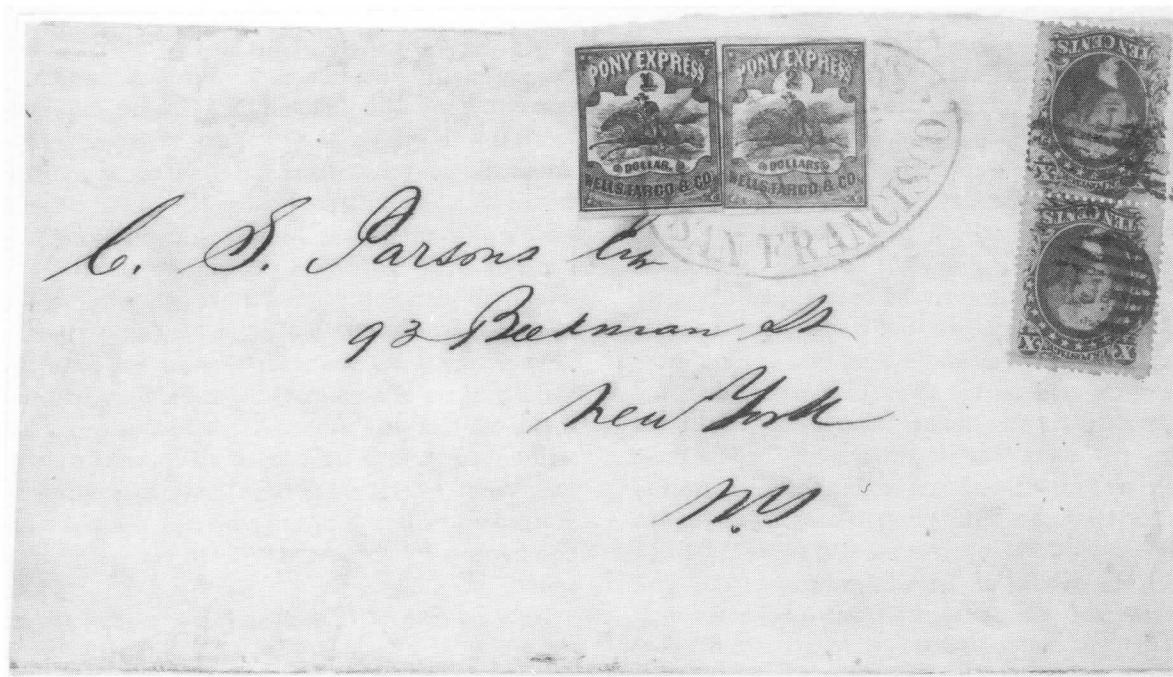 PONY EXPRESS
1
DOLLAR.
WELLS, FARGO & CO
PONY EXPRESS
2
DOLLARS
WELLS, FARGO & CO
SAN FRANCISCO
TEN CENTS
X
TEN CENTS
X X
C. S. Parsons Esq
93 Beekman St
New York
N.Y